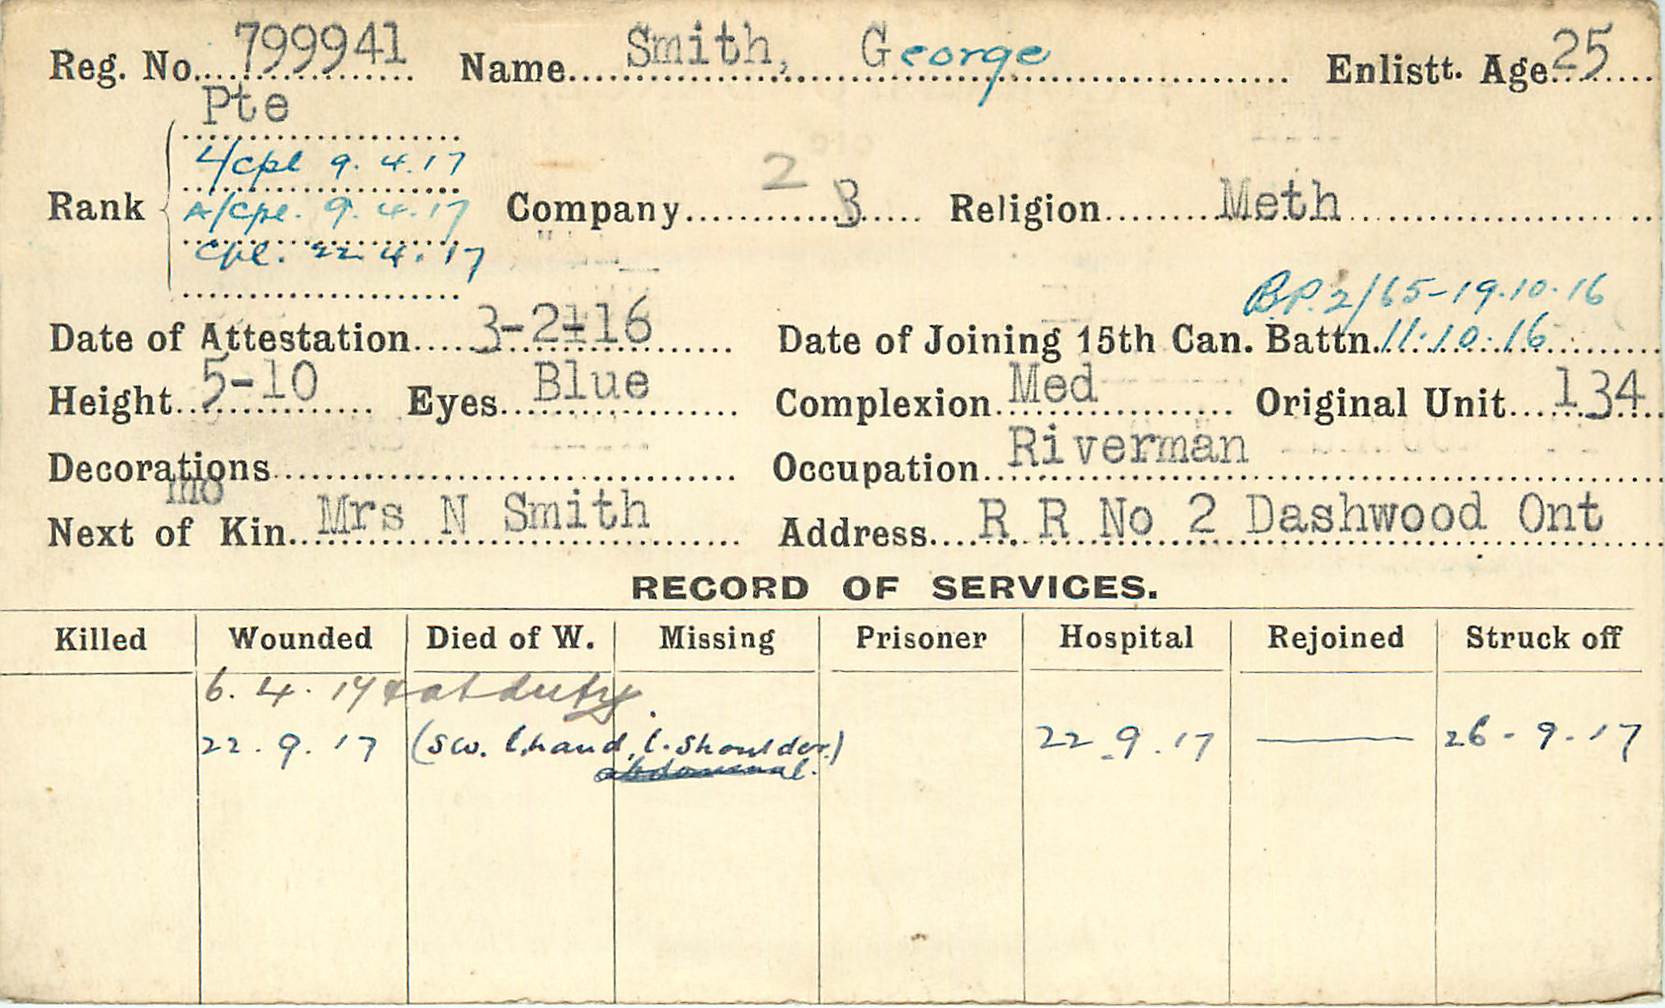 Reg. No. 799941 Name Smith, George Enlistt. Age 25
Pte
L/cpl 9.4.17
Rank A/cpl. 9.4.17 Company 2 3 Religion Meth
Cpl. 22.4.17
BP.2/65-19.10.16
Date of Attestation 3-2-16 Date of Joining 15th Can. Battn. 11.10.16
Height 5-10 Eyes Blue Complexion Med Original Unit 134
Decorations Occupation Riverman
mo
Next of Kin Mrs N Smith Address R R No 2 Dashwood Ont
RECORD OF SERVICES.
Killed Wounded Died of W. Missing Prisoner Hospital Rejoined Struck off
6.4.17 at duty.
22.9.17 (sw. l. hand, l. shoulder) 22.9.17 — 26-9-17
abdominal.